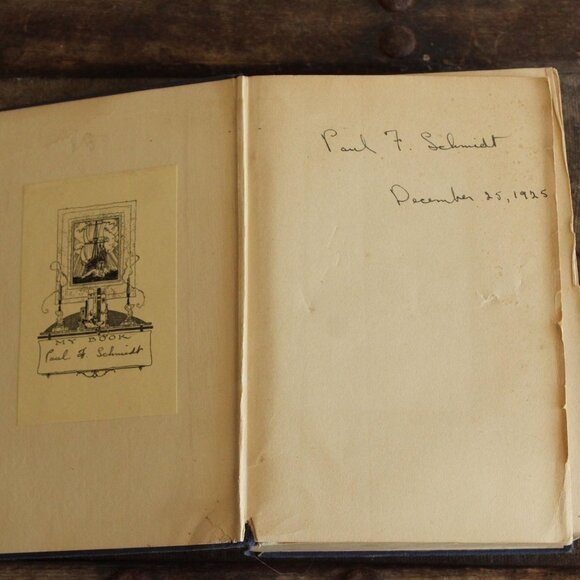 MY BOOK
Paul F. Schmidt
Paul F. Schmidt
December 25, 1925